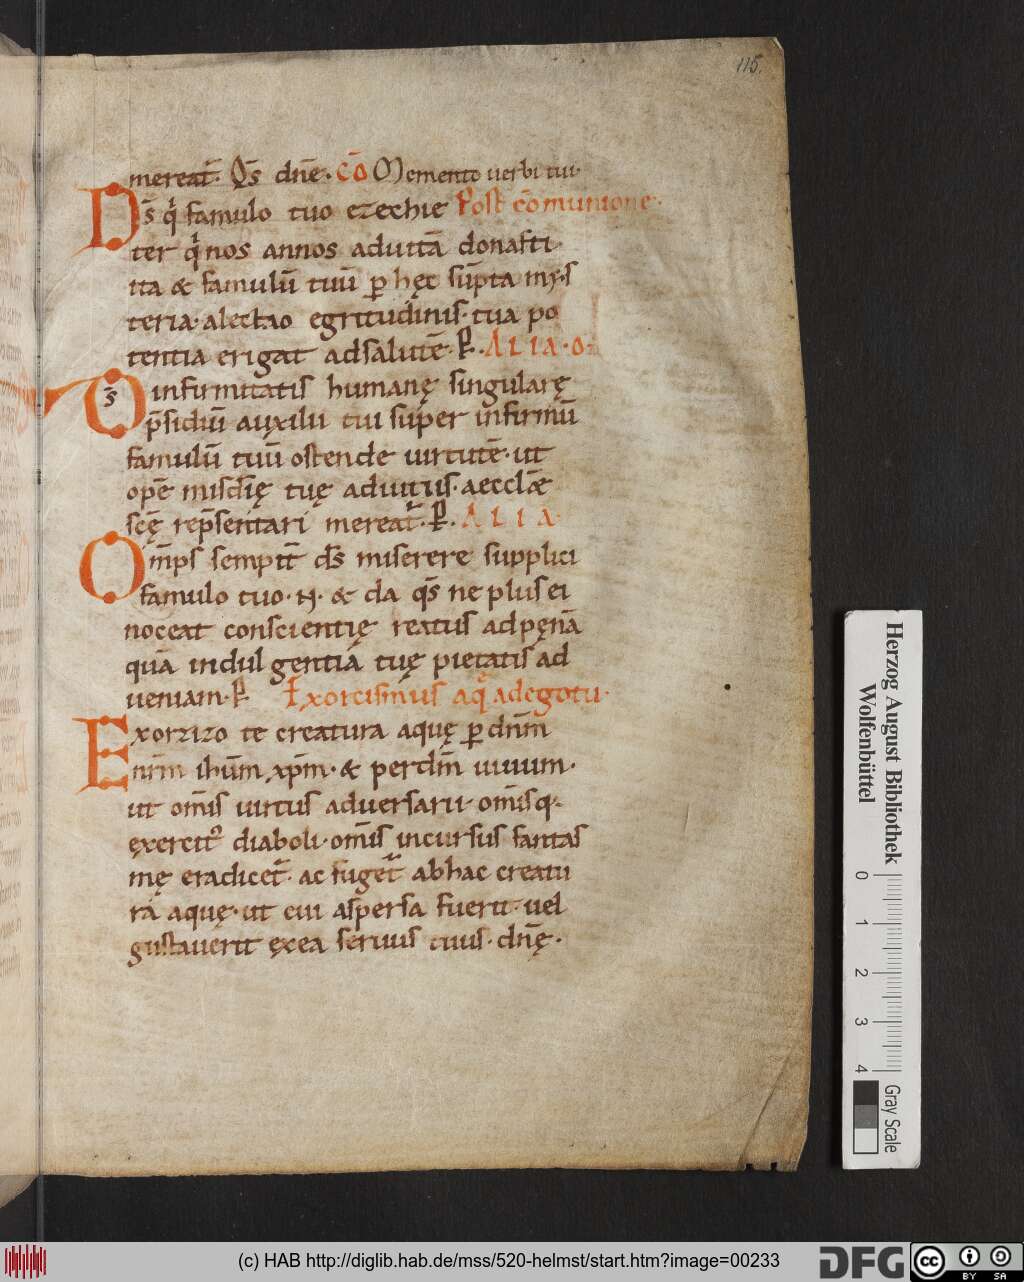 115.
mereat̄. Q̄s dn̄e. cō Memento uerbi tui.
Ds̄ q̇ famulo tuo ezechie Post cōmunione.
ter q̇nos annos aduitā donasti
ita & famulū tuū ꝑ hęc sūpta mys
teria. alectao egritudinis. tua po
tentia erigat adsalutē. P. ALIA. O.
Ds̄ infirmitatis humanę singularę
p̄sidiū auxilii tui super infirmū
famulū tuū ostende uirtutē. ut
opē misc̄dię tuę adiutus. aecclæ
scę rep̄sentari mereat̄. P. ALIA.
Om̄ps sempit̄ ds̄ miserere supplici
famulo tuo. N. & da qs̄ ne plus ei
noceat conscientię reatus adpęnā
quā indulgentia tuę pietatis ad
ueniam. P Exorcismus aq̄ adegotū.
Exorzizo te creatura aquę ꝑ dnm̄
nr̄m ihūm xp̄m. & perdm̄ uiuum.
ut om̄is uirtus aduersarii. om̄isq.
exercitꝰ diaboli. om̄is incursus fantas
mę eradicet̄. ac fuget̄ abhac creatu
ra aquę. ut cui aspersa fuerit. uel
gustauerit ęxea seruus tuus. dn̄ę.
Herzog August Bibliothek
Wolfenbüttel
0 1 2 3 4
Gray Scale
(c) HAB http://diglib.hab.de/mss/520-helmst/start.htm?image=00233
DFG
cc BY SA